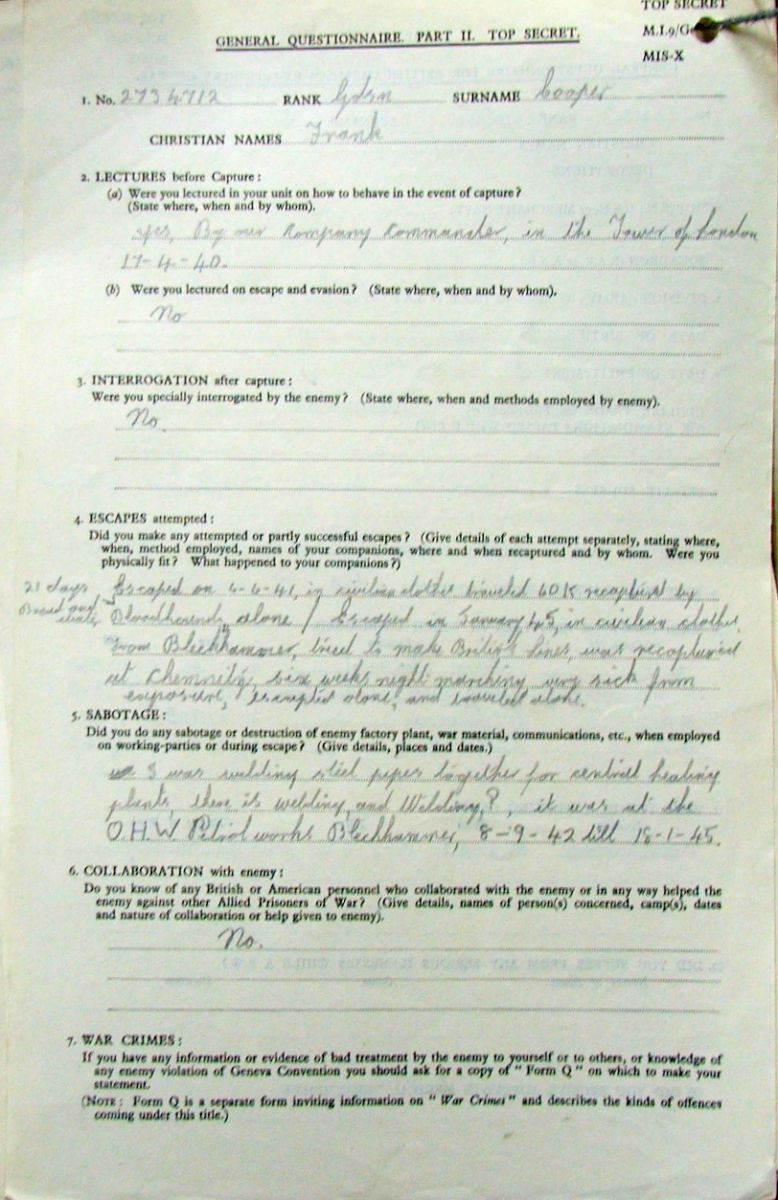 TOP SECRET
GENERAL QUESTIONNAIRE. PART II. TOP SECRET.
M.I.9/G
MIS-X
1. No. 2734712 RANK Gdsn SURNAME Cooper
CHRISTIAN NAMES Frank
2. LECTURES before Capture:
(a) Were you lectured in your unit on how to behave in the event of capture?
(State where, when and by whom).
Yes, By our Company Commander, in the Tower of London
17-4-40.
(b) Were you lectured on escape and evasion? (State where, when and by whom).
No
3. INTERROGATION after capture:
Were you specially interrogated by the enemy? (State where, when and methods employed by enemy).
No.
4. ESCAPES attempted:
Did you make any attempted or partly successful escapes? (Give details of each attempt separately, stating where,
when, method employed, names of your companions, where and when recaptured and by whom. Were you
physically fit? What happened to your companions?)
21 days Escaped on 4-6-41, in civilian clothes traveled 60 K recaptured by
Bread and Bloodhounds, alone / Escaped in January 45, in civilian clothes,
from Blechhammer, tried to make British lines, was recaptured
at Chemnitz, six weeks night marching, very sick from
exposure, escaped alone, and traveled alone.
5. SABOTAGE:
Did you do any sabotage or destruction of enemy factory plant, war material, communications, etc., when employed
on working-parties or during escape? (Give details, places and dates.)
I was welding steel pipes together for centrall heating
plants, there is welding, and Welding,?, it was at the
O.H.W Petrol works Blechhammer, 8-9-42 till 18-1-45.
6. COLLABORATION with enemy:
Do you know of any British or American personnel who collaborated with the enemy or in any way helped the
enemy against other Allied Prisoners of War? (Give details, names of person(s) concerned, camp(s), dates
and nature of collaboration or help given to enemy).
No.
7. WAR CRIMES:
If you have any information or evidence of bad treatment by the enemy to yourself or to others, or knowledge of
any enemy violation of Geneva Convention you should ask for a copy of "Form Q" on which to make your
statement.
(NOTE: Form Q is a separate form inviting information on "War Crimes" and describes the kinds of offences
coming under this title.)